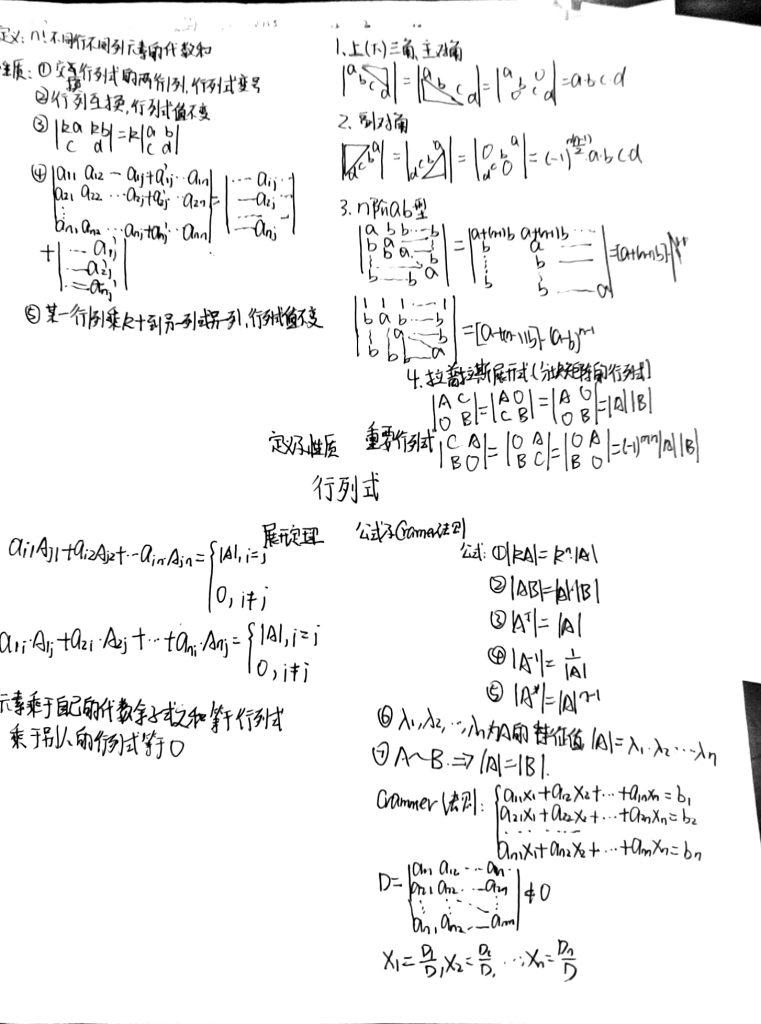 定义: n! 不同行不同列元素的代数和
性质: ① 交换行列式的两行列, 行列式变号
② 行列互换, 行列式值不变
③ |ka kb; c d| = k|a b; c d|
④ |a11 a12 … a1j+a'1j … a1n; a21 a22 … a2j+a'2j … a2n; ⋮; an1 an2 … anj+a'nj … ann| = |… a1j …; — a2j —; … — anj|
+ |… a'1j; — a'2j; … a'nj|
⑤ 某一行列乘k+到另一列, 行列式值不变
1. 上(下)三角, 主对角
|a b c d| = |a b c d| = |a b c d 0 0| = a·b·c·d
2. 副对角
|a b c d| = |a b c d| = |0 a b c d 0| = (-1)^{n(n-1)/2} a·b c d
3. n阶ab型
|a b b … b; b a … b; b … a … b; b … b a| = |a+(n-1)b a+(n-1)b …; b a …; ⋮ b; b b — a| = [a+(n-1)b]·
|1 1 1 … 1; b a b … b; ⋮ b a b; b b b a| = [a+(n-1)b]·(a-b)^{n-1}
4. 拉普拉斯展开式(分块矩阵的行列式)
|A C; O B| = |A O; C B| = |A O; O B| = |A||B|
定义及性质 重要行列式 |C A; B O| = |O A; B C| = |O A; B O| = (-1)^{mn}|A||B|
行列式
展开定理 公式及Cramer法则
ai1Aj1+ai2Aj2+…ain·Ajn = {|A|, i=j
0, i≠j
a1i·A1j+a2i·A2j+…+ani·Anj = {|A|, i=j
0, i≠j
元素乘于自己的代数余子式之和等于行列式
乘于别人的行列式等于0
公式: ① |kA| = k^n·|A|
② |AB| = |A|·|B|
③ |A^T| = |A|
④ |A^{-1}| = 1/|A|
⑤ |A*| = |A|^{n-1}
⑥ λ1, λ2, …, λn为A的特征值, |A| = λ1·λ2…λn
⑦ A~B. ⇒ |A|=|B|.
Crammer法则: {a11x1+a12x2+…+a1nxn=b1
a21x1+a22x2+…+a2nxn=b2
……
an1x1+an2x2+…+annxn=bn
D = |a11 a12 … a1n; a21 a22 … a2n; ⋮; an1 an2 … ann| ≠ 0
x1 = D1/D, x2 = D2/D, …, xn = Dn/D